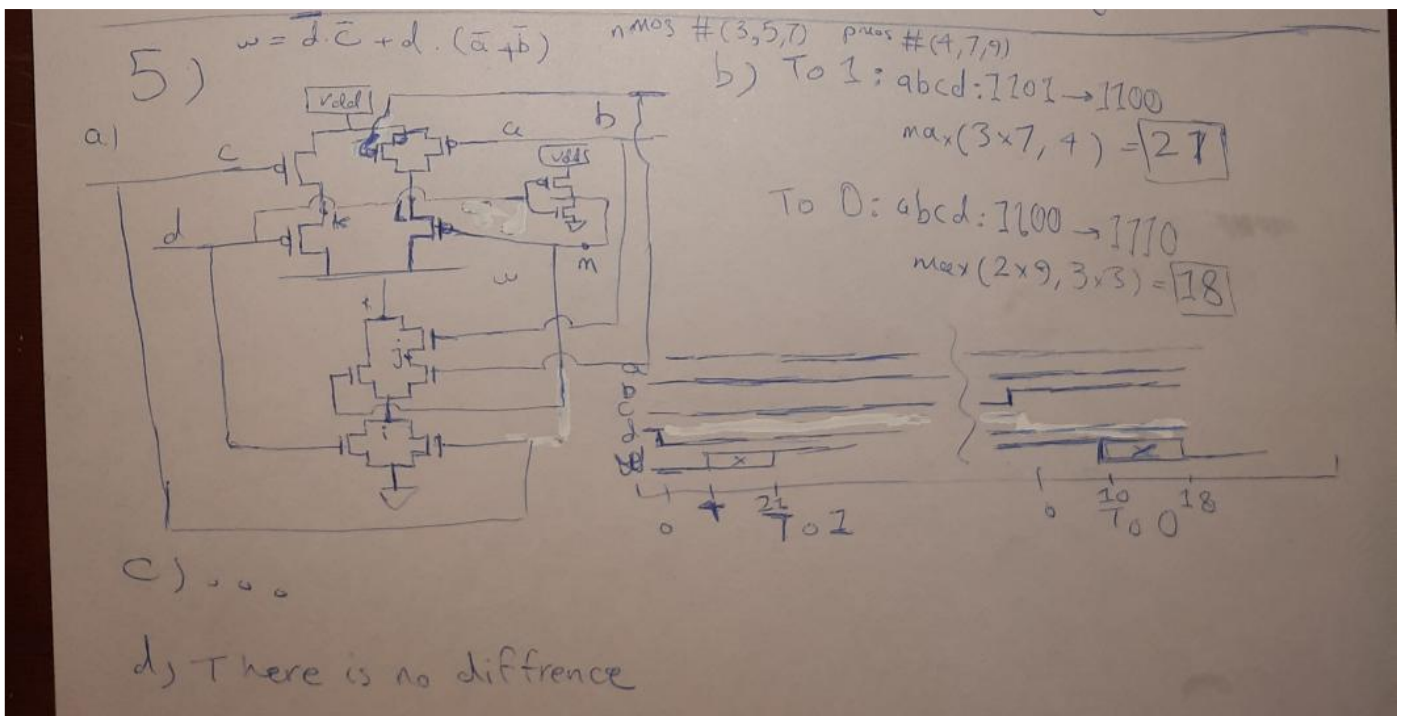 5) w = d̅.c̅ + d.(a̅+b̅) nmos #(3,5,7) pmos #(4,7,9)
a)
Vdd
c
a
b
Vdd
k
d
m
w
j
i
b) To 1: abcd: 1101→1100
max(3x7, 4) = 21
To 0: abcd: 1100→1110
max(2x9, 3x3) = 18
a
b
c
d
x
x
0
21
To 1
0
10
18
To 0
c) ...
d) There is no diffrence